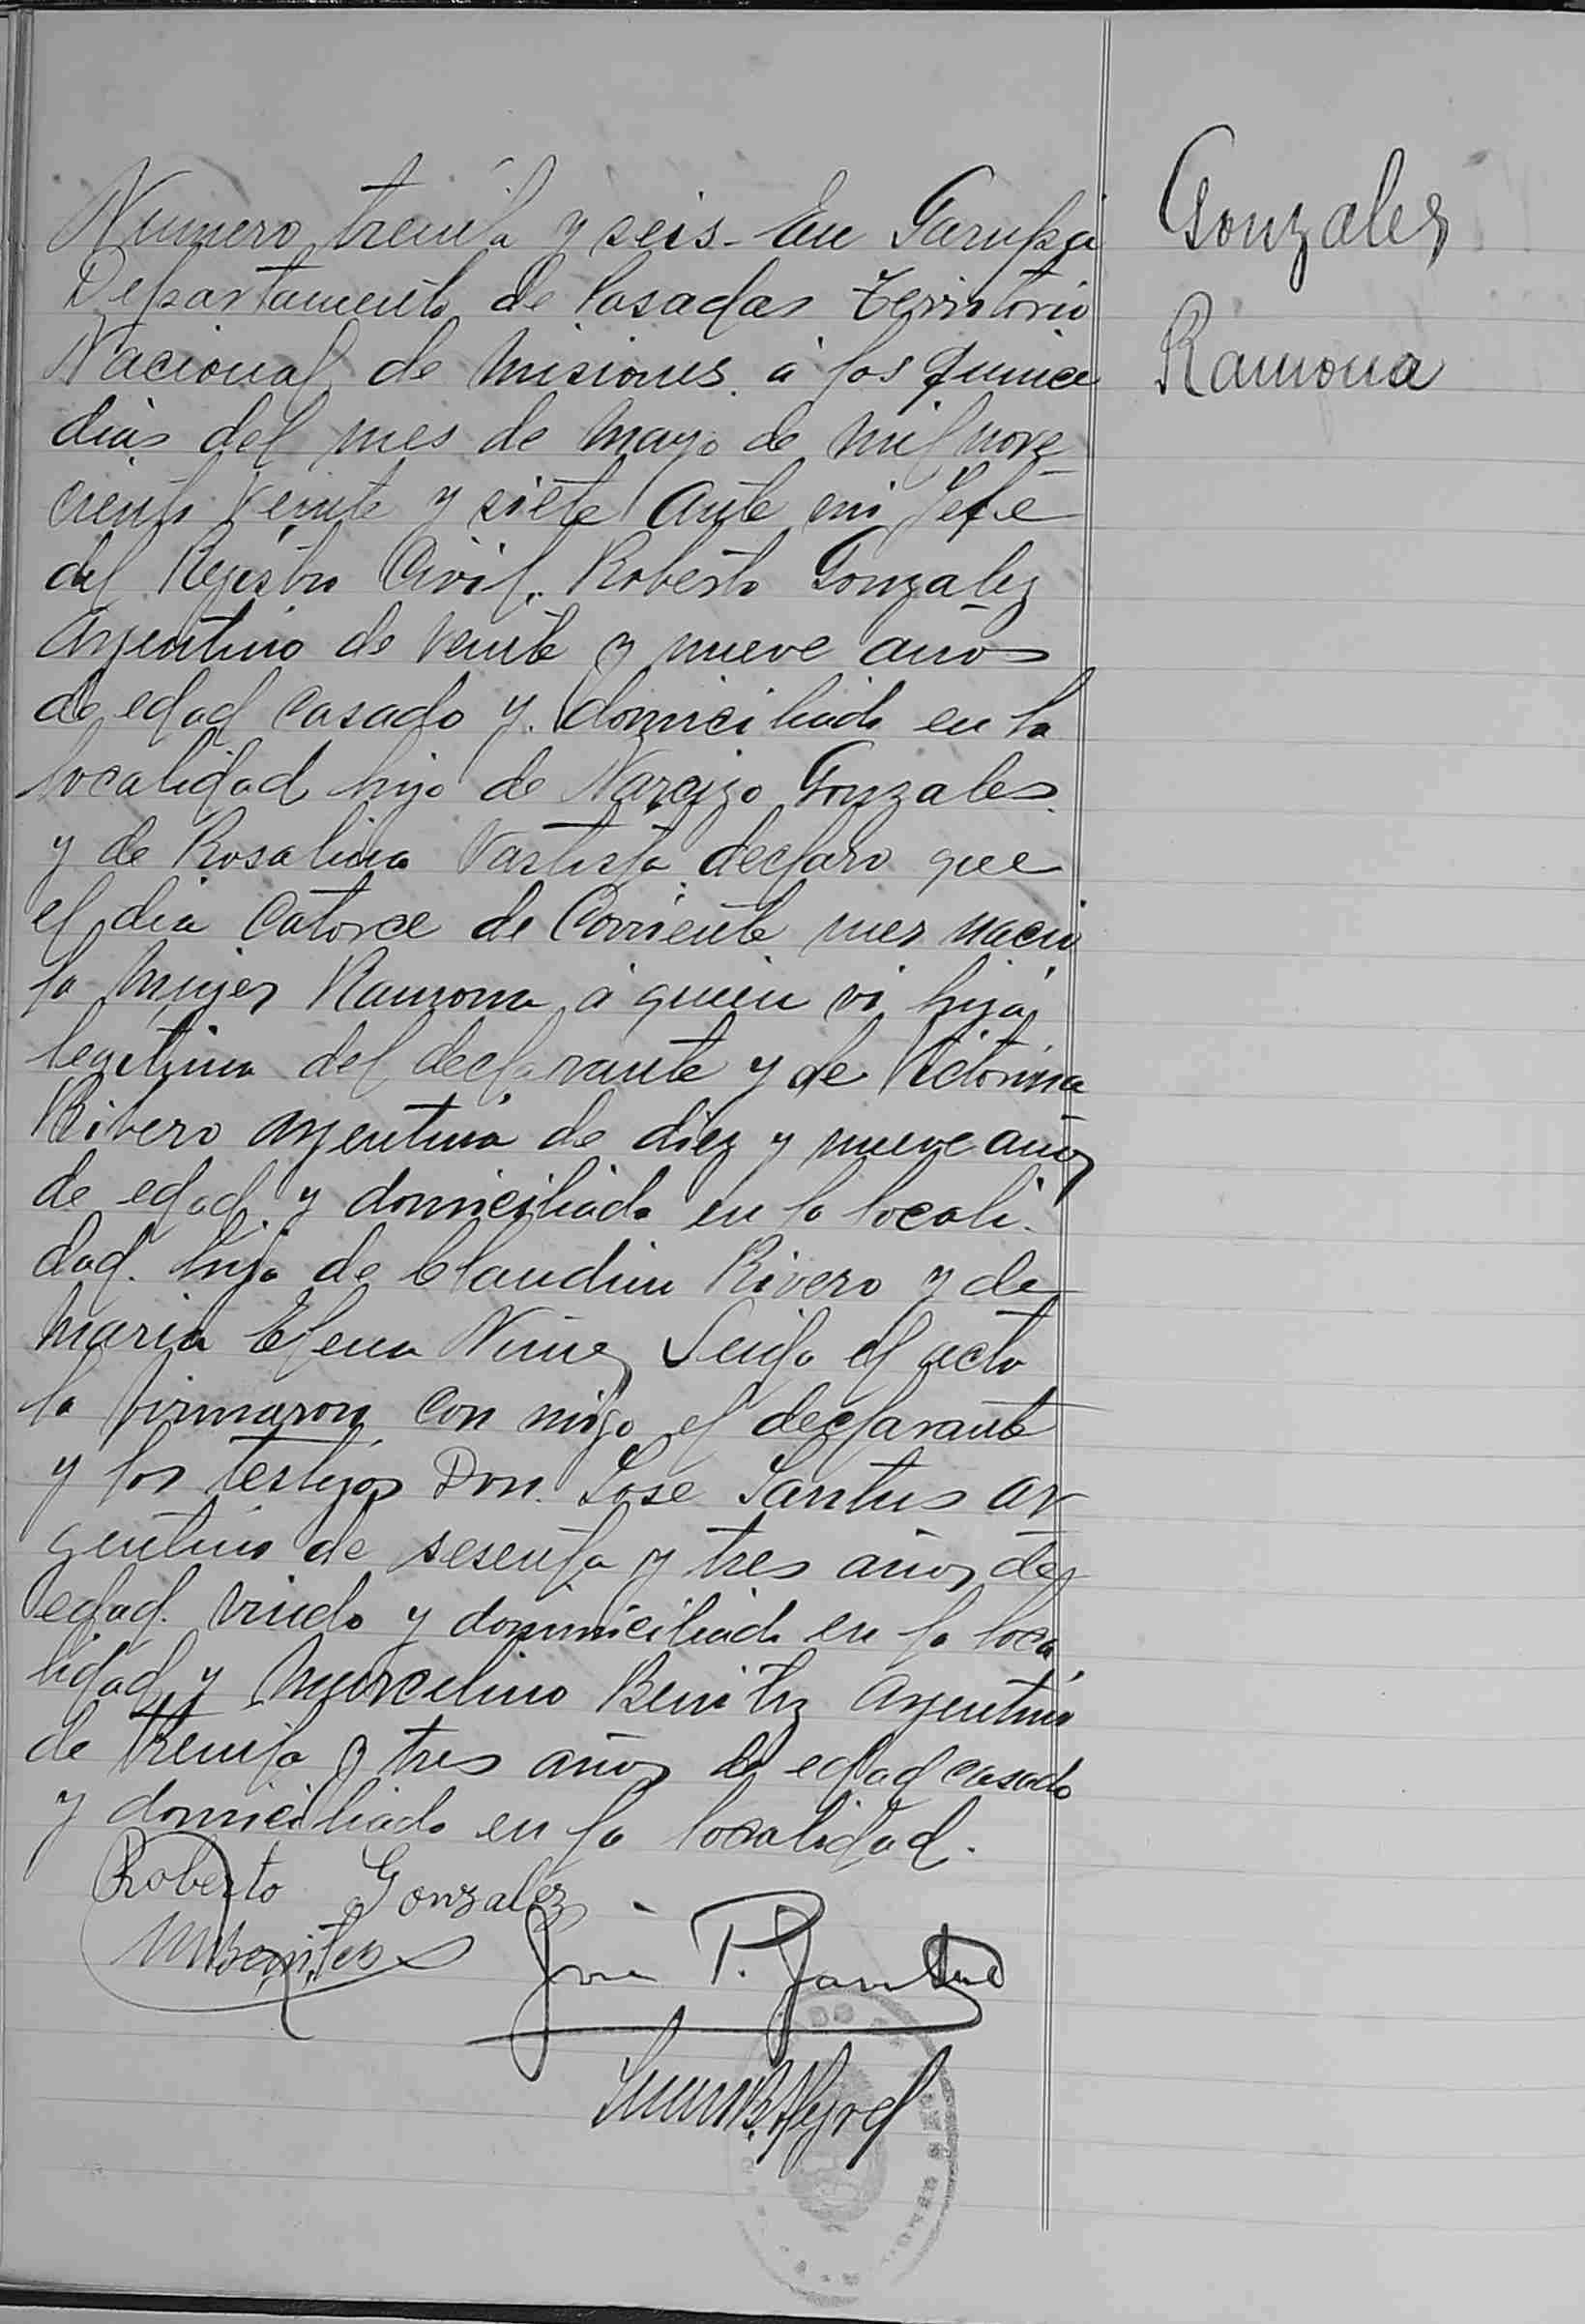 Gonzales
Ramona
Numero treinta y seis - En Garupá
Departamento de Posadas Territorio
Nacional de Misiones á los quince
dias del mes de Mayo de mil nove
ciento veinte y siete Ante mi Jefe
del Rejistro Civil, Roberto Gonzalez
Argentino de veinte y nueve años
de edad casado y domiciliado en la
localidad hijo de Narcizo Gonzales
y de Rosalina declaro que
el dia Catorce de Corriente mes nacio
la mujer Ramona á quien vi hija
legitima del declarante y de Victorina
Ribero argentina de diez y nueve años
de edad y domiciliada en la locali-
dad. hija de Rivero y de
Maria Elena el acto
la firmaron con migo el declarante
y los testigos Don. Jose Santus ar
gentino de sesenta y tres años de
edad. viudo y domiciliado en la loca
lidad y Marcelino Benitez Argentino
de treinta y tres años de edad casado
y domiciliado en la localidad.
Roberto Gonzalez
MBenites
Jose P.